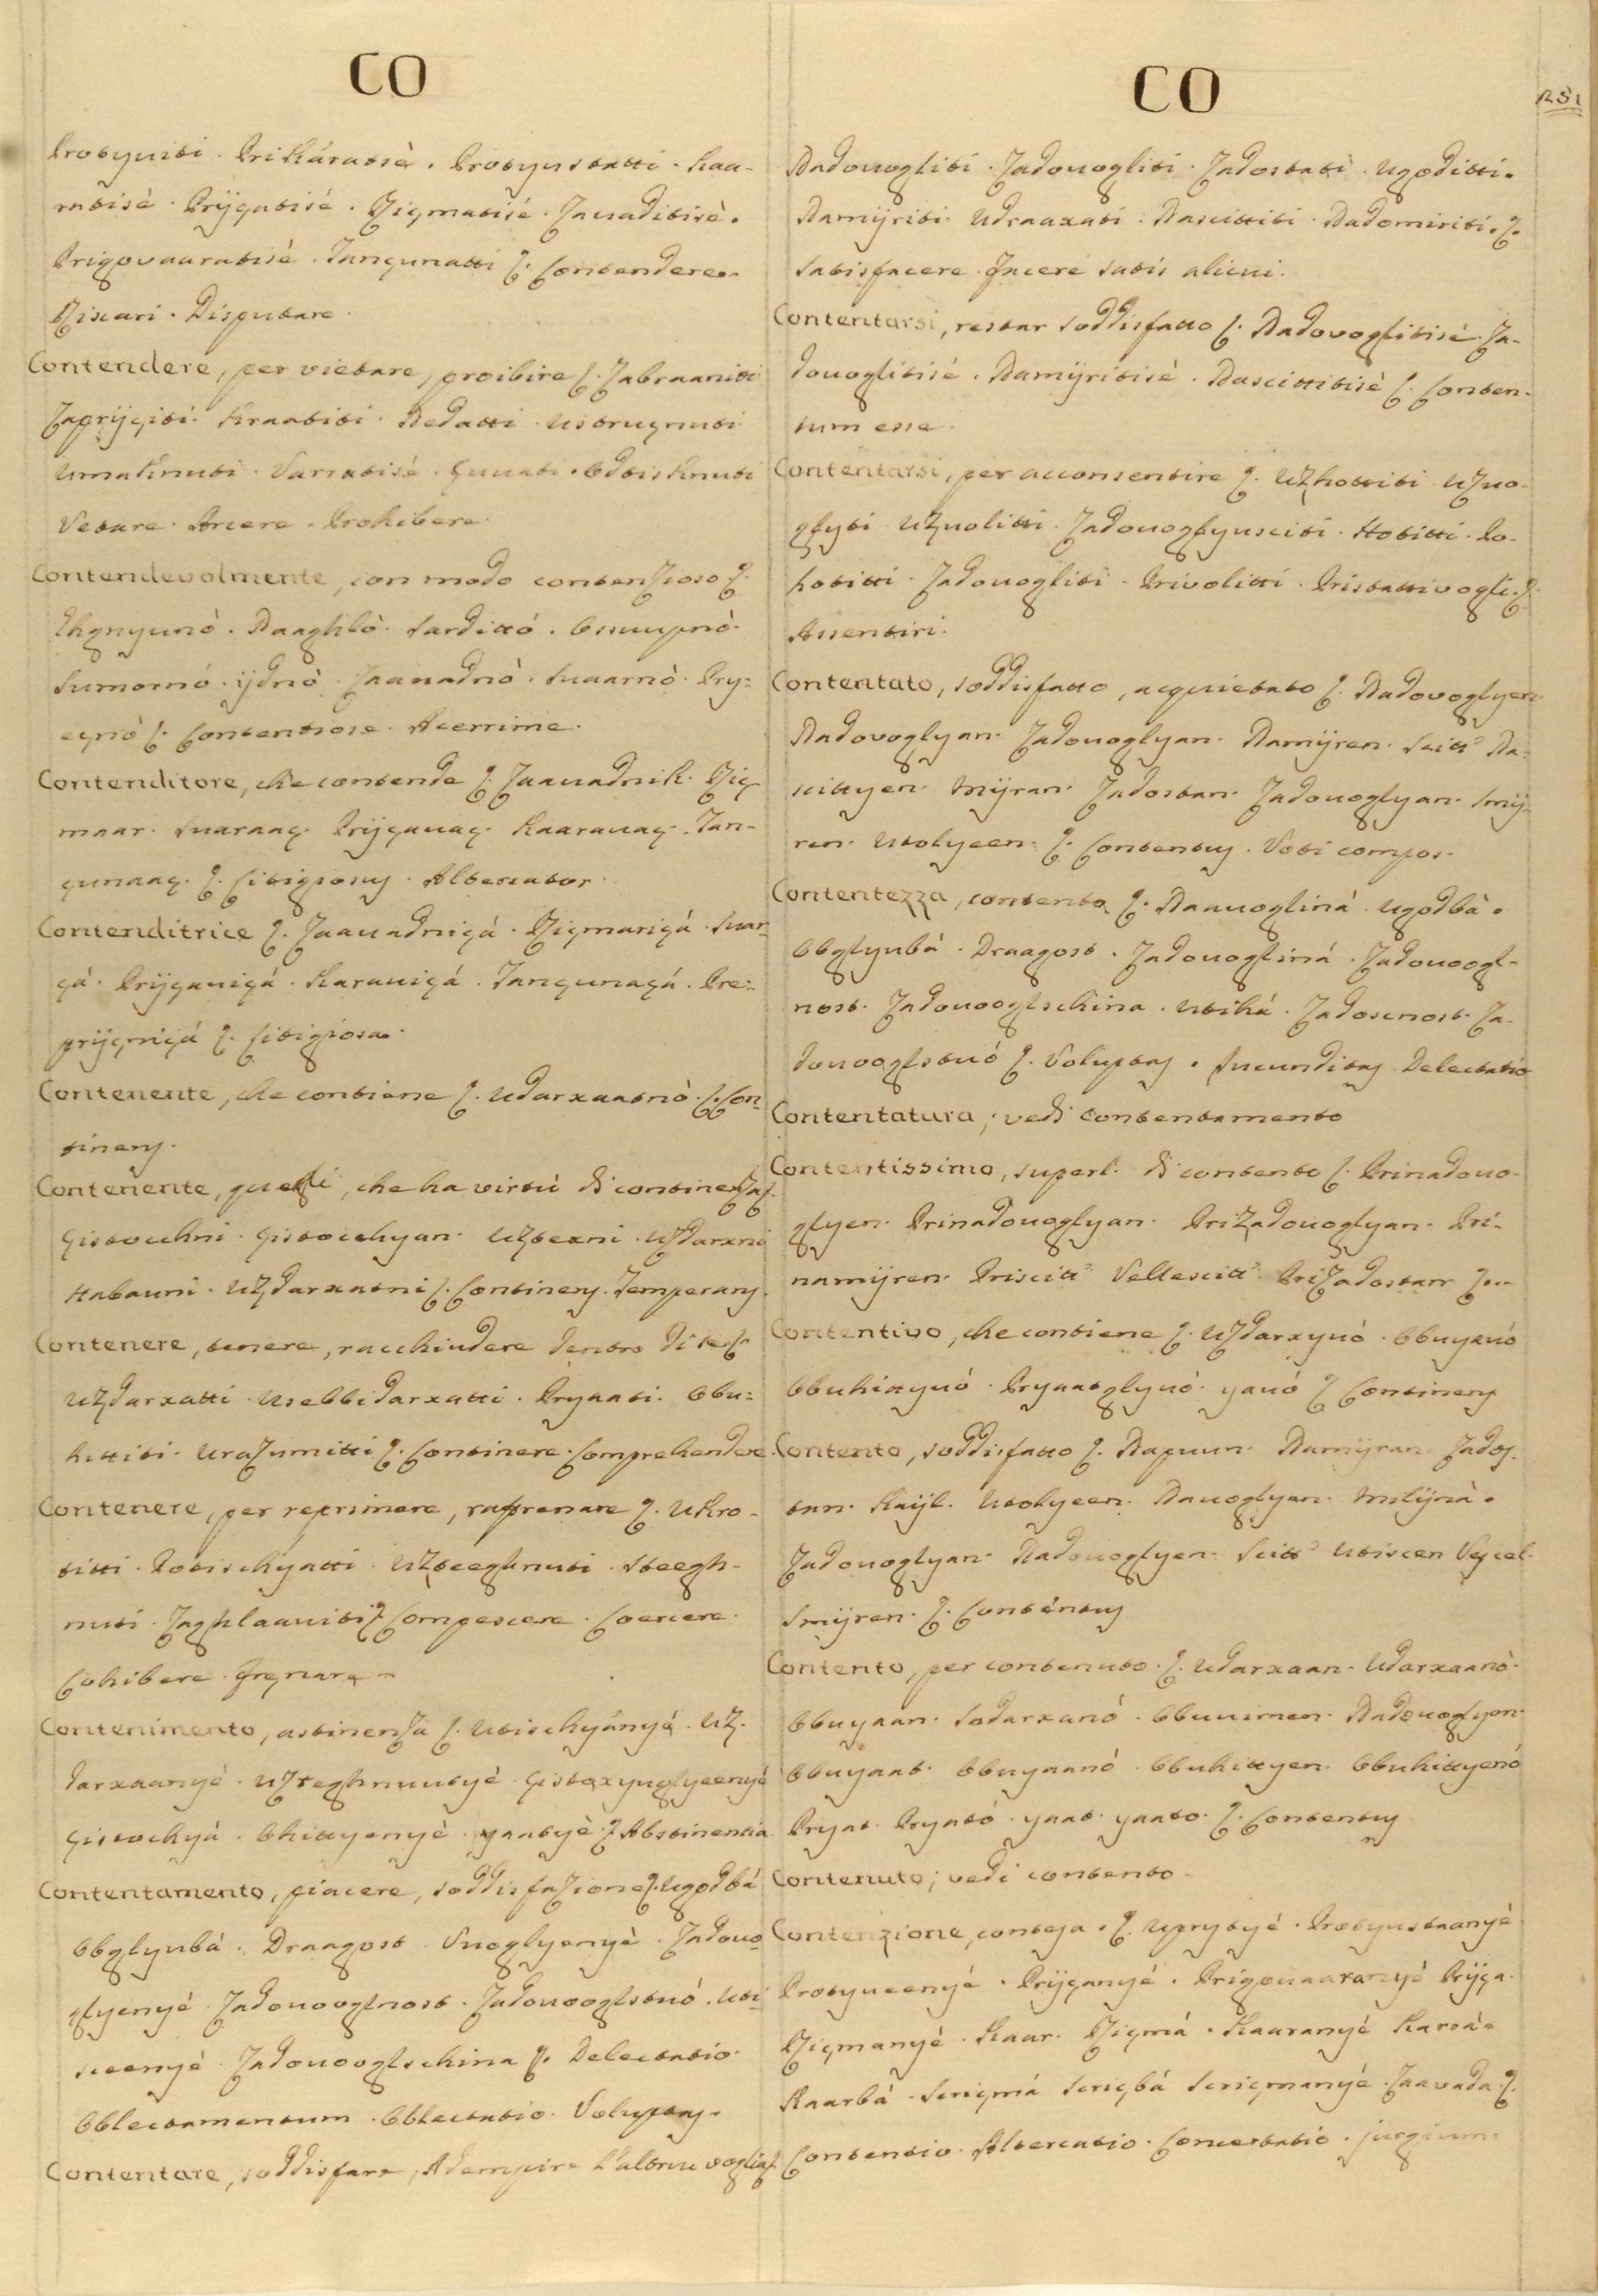 CO
Protyviti · Prikáratsè · Protyustatti · Kaa-
ratisè · Prijçatisé · Riçmatisé · Zavaditisè ·
Prigovaaratisé · Tançunatti L. Contendere ·
Rixari · Disputare ·
Contendere, per vietare, proibire L. Zabraanitti
Zaprijçiti · Kraatiti · Nedatti · Ustrugnuti
Umaknuti · Varratisè · Çuuati · Odtisknuti
Vetare · Arcere · Prohibere ·
Contendevolmente, con modo contenzioso L.
Ehgnyunò · Naaghlò · Sardittó · Ossuupnò ·
Sumornó · ijdnò · Zaauadnò · Suaarnò · Pry-
eçnò L. Contentiose · Acerrime ·
Contenditore, che contende L. Zaauadnik · Riç
maar · Suaraaç · Prijçauaç · Kaarauaç · Tan-
çunaaç · L. Litigiosus · Altercator ·
Contenditrice L. Zaauadniçá · Riçmariçá · Suar-
çá · Prijçauiçá · Karauiçá · Tançunaçá · Pre-
prijçniçá L. Litigiosa ·
Contenente, che contiene L. Udarxaatnò · L. Con-
tinens ·
Contenente, quelli, che ha virtù di continenza L.
Çistocchni · Çistocchyan · Uztexni · Uzdarxni
Habauni · Uzdarxatni L. Continens · Temperans ·
Contenere, tenere, racchiudere dentro di se L.
Uzdarxatti · Usebbidarxatti · Pryaati · Obu-
hittiti · Urazumitti L. Continere · Comprehendere ·
Contenere, per reprimere, raffrenare L. Ukro-
titti · Potischyatti · Uzteeghnuti · Steegh-
nuti · Zaghlaauiti L. Compescere · Coercere ·
Cohibere · Frenare
Contenimento, astinenza L. Utischyányé · Uz-
darxaanyè · Uzteghnuutyè · Çistoxyuglyeenyè
Çistochyá · Ohittyenyè · yaatyè · L. Abstinentia
Contentamento, piacere, soddisfazione L. Ugodbá
Obglyubá · Draagost · Vuoglyenyè · Zadouo-
glyenyè · Zadouooglnost · Zadouooglstuó · Uti-
sceenyè · Zadouooglschina L. Delectatio ·
Oblectamentum · Oblectatio · Voluptas ·
Contentare, soddisfare, Adempire l'altrui voglia L.
CO
251
Nadouogliti · Zadouogliti · Zadostati · Ugoditti ·
Namijriti · Udraaxati · Nascittiti · Nadomiriti · L.
Satisfacere · Facere satis alicui ·
Contentarsi, restar soddisfatto L. Nadovoglitisé · Za-
douoglitisé · Namijritisè · Nascittitisè L. Conten-
tum esse ·
Contentarsi, per acconsentire L. Uzhottiti · Uzuo-
glyti · Uzuolitti · Zadouoglyusciti · Hotitti · Po-
hotitti · Zadouogliti · Privolitti · Pristattivogli · L.
Assentiri ·
Contentato, soddisfatto, acquietato L. Nadovoglyen ·
Nadovoglyan · Zadouoglyan · Namijren · Scitt · Na-
scittyen · Mijran · Zadostan · Zadouoglyan · Smij-
ren · Utolyeen · L. Contentus · Voti compos ·
Contentezza, contento L. Naauogliná · Ugodbà ·
Obglyubá · Draagost · Zadouogliná · Zadouoogl-
nost · Zadouooglschina · Utihá · Zadoscnost · Za-
douooglstuó L. Voluptas · Jucunditas · Delectatio
Contentatura; vedi contentamento
Contentissimo, superl. di contento L. Prinadouo-
glyen · Prinadouoglyan · Prizadouoglyan · Pri-
namijren · Priscitt · Vellescitt · Prizadostan L.
Contentivo, che contiene L. Uzdarxyuó · Obuyauó
Obuhittyuó · Pryaatglyuò · yauó L. Continens
Contento, soddisfatto L. Napuun · Namijran · Zados-
tan · Kaijl · Utolyeen · Nauoglyen · Milijnà ·
Zadouoglyan · Nadouoglyen · Scitt · Utiscen · Vescel ·
Smijren · L. Contentus
Contento, per contenuto · L. Udarxaan · Udarxaanò ·
Obuyaan · Sadarxanó · Obuuimen · Nadouoglyen ·
Obuyaat · Obuyaanó · Obuhittyen · Obuhittyenó
Pryat · Pryató · yaat · yaato · L. Contentus
Contenuto; vedi contento ·
Contenzione, contesa · L. Uprytyé · Protyustaanyé
Protyueenyé · Prijçanyé · Prigouaaranyé Prijça ·
Riçmanyé · Kaar · Riçmá · Kaaranyé Karbá ·
Kaarbá · Scriçmá Scriçbá Scriçmanyé · Zaavada L.
Contentio · Altercatio · Concertatio · jurgium ·